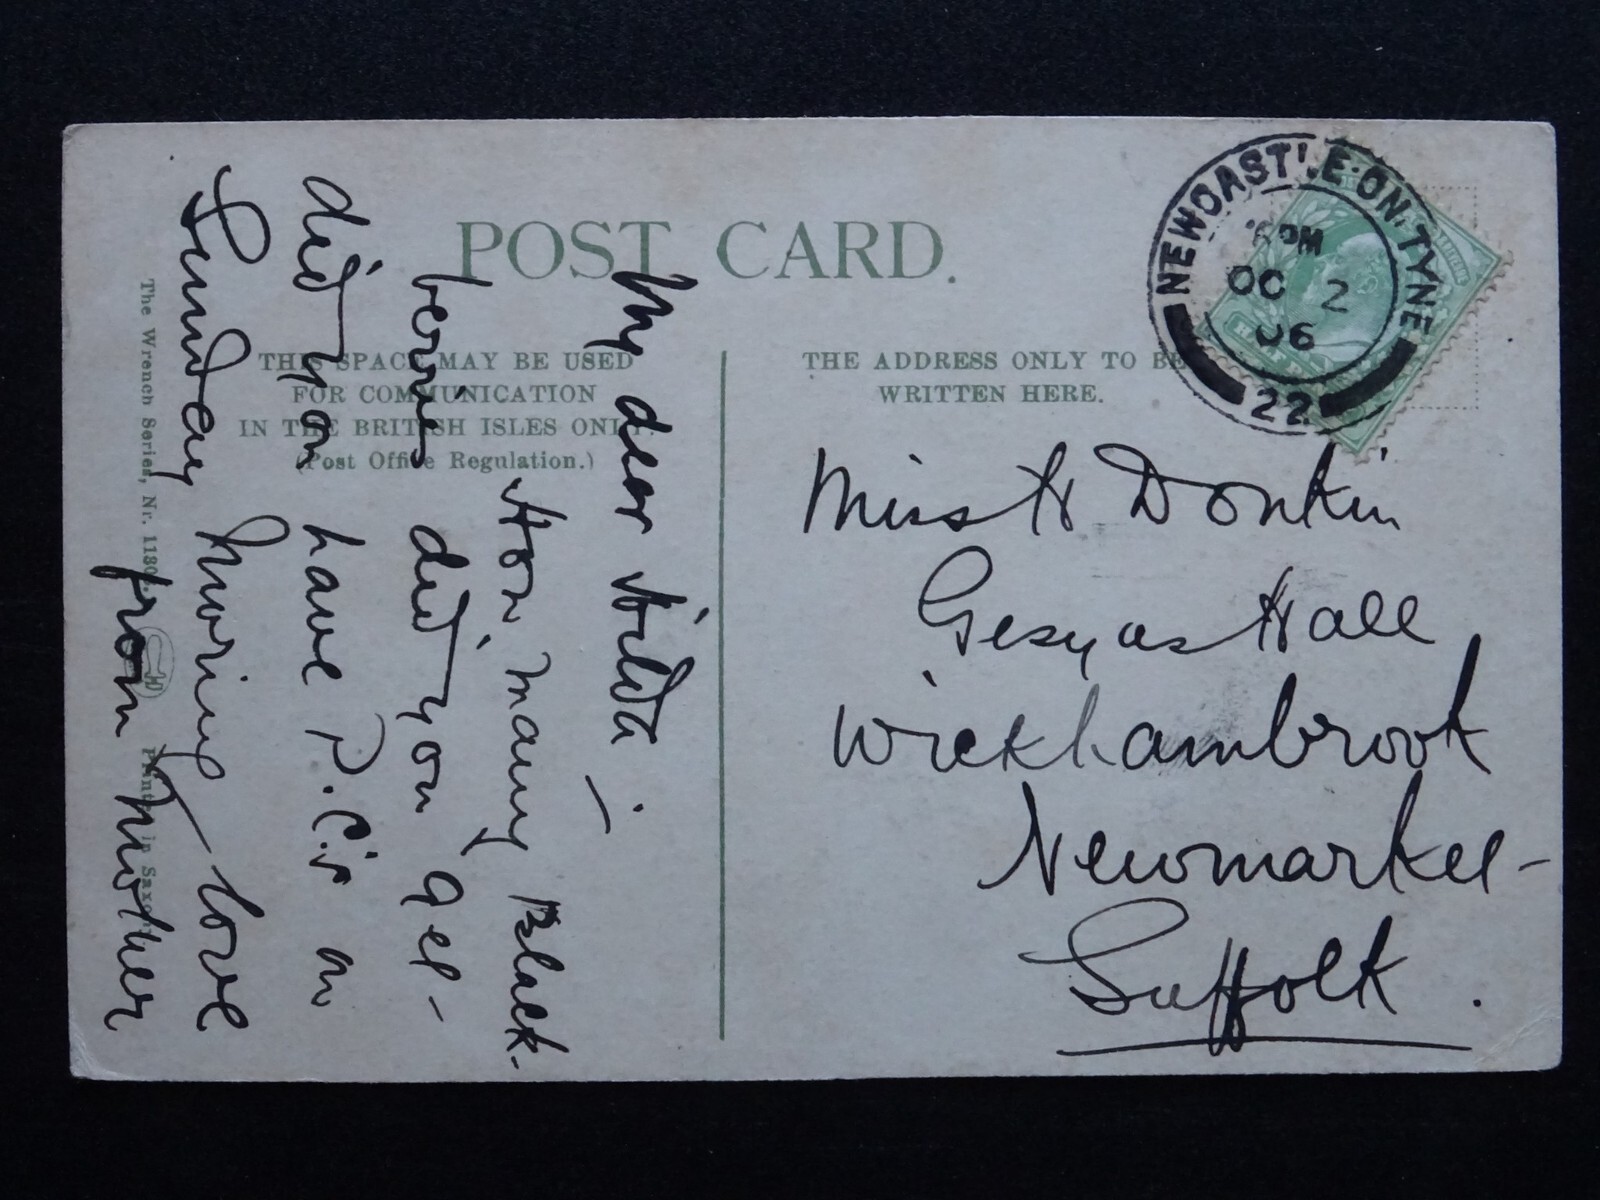 POST CARD.
THIS SPACE MAY BE USED
FOR COMMUNICATION
IN THE BRITISH ISLES ONLY.
(Post Office Regulation.)
THE ADDRESS ONLY TO BE
WRITTEN HERE.
NEWCASTLE·ON·TYNE
PM
OC 2
06
22
My dear Hilda –
How many Black-
berries did you get –
did you have P.C's on
Sunday morning love
from Mother
Miss H Donkin
Gesyns Hall
Wickhambrook
Newmarket –
Suffolk.
The Wrench Series, Nr. 1180
Printed in Saxony